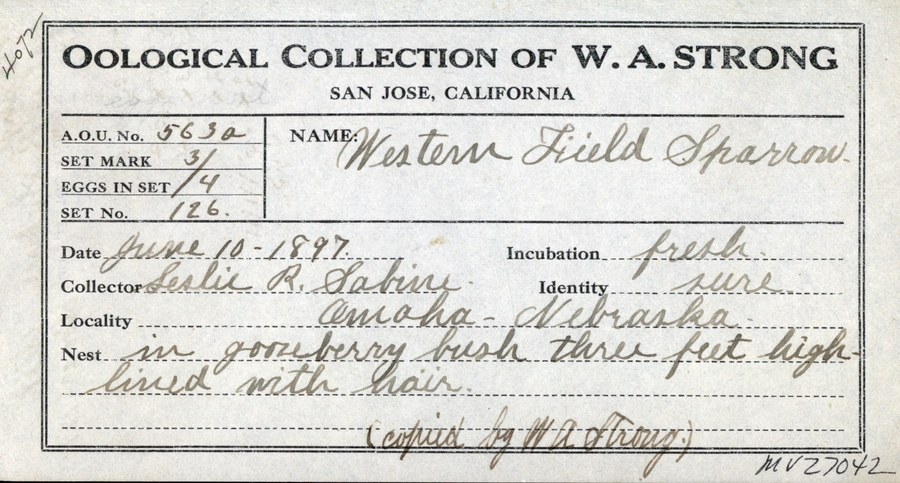 4072
OOLOGICAL COLLECTION OF W. A. STRONG
SAN JOSE, CALIFORNIA
A.O.U. No. 563a
SET MARK 3/
EGGS IN SET /4
SET No. 126.
NAME: Western Field Sparrow.
Date June 10-1897.
Incubation fresh.
Collector Leslie R. Sabine.
Identity sure.
Locality Omaha - Nebraska.
Nest in gooseberry bush three feet high-
lined with hair.
(copied by W A Strong.)
MVZ7042